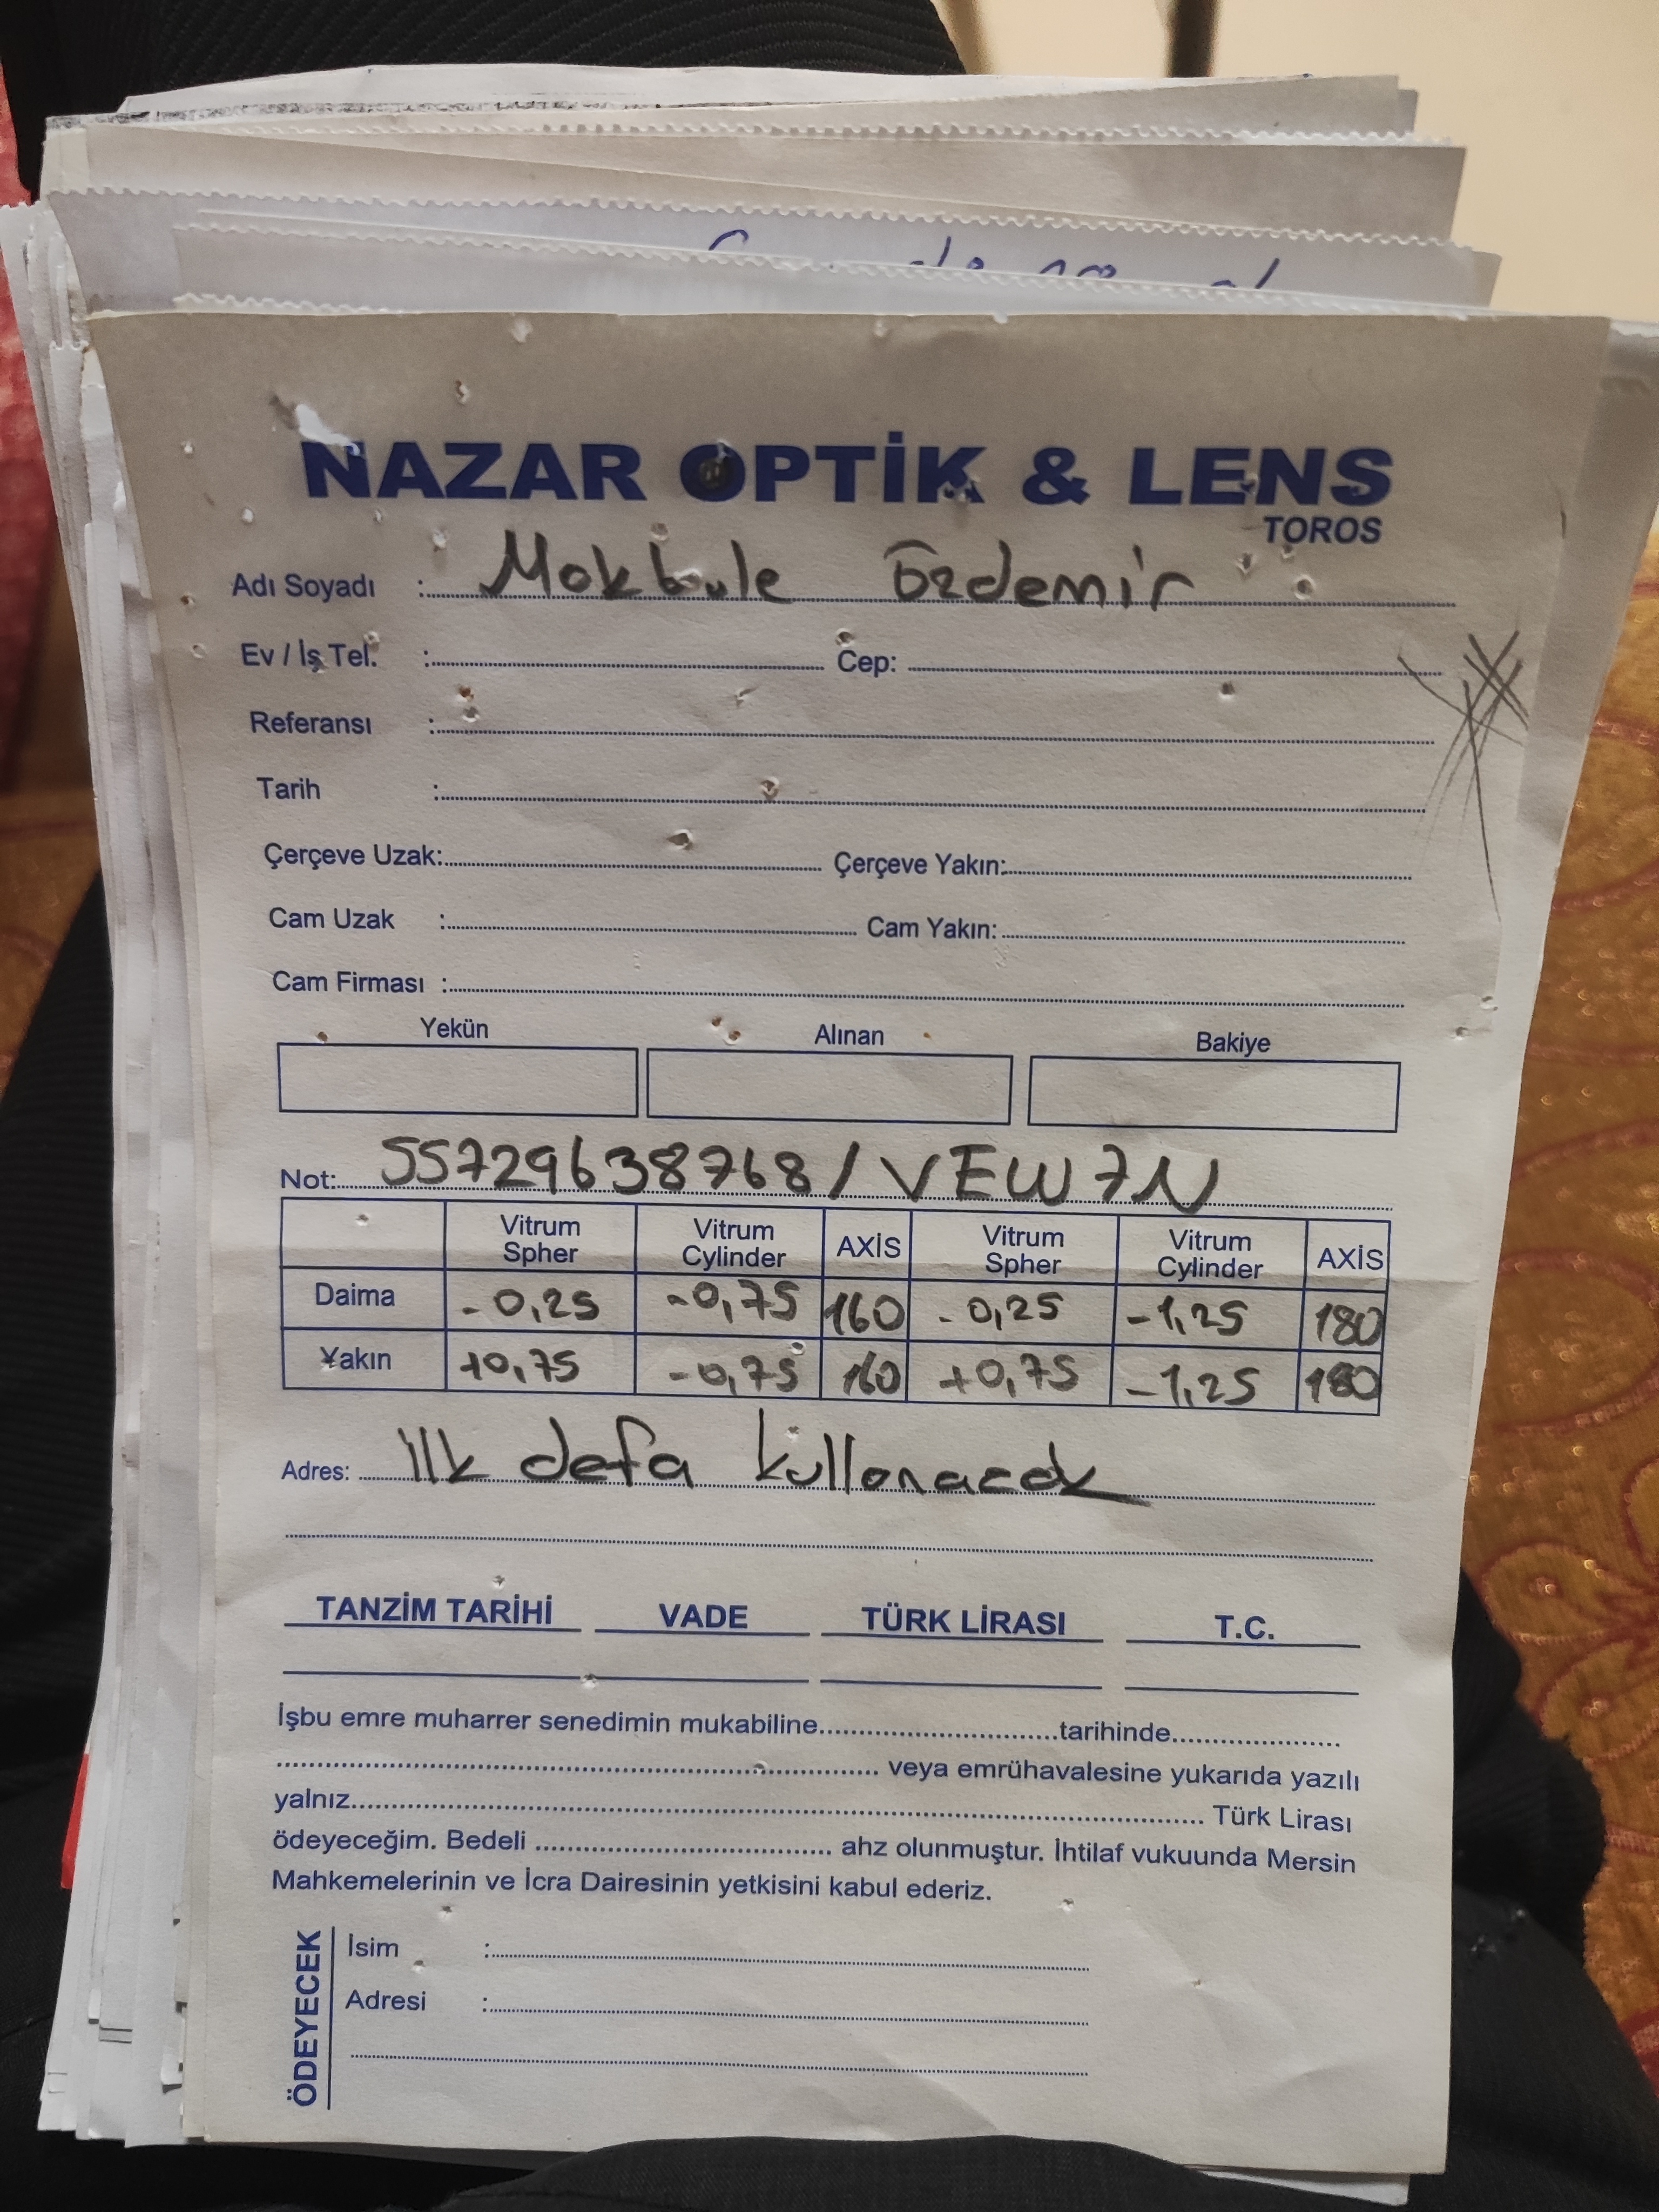 NAZAR OPTİK & LENS
TOROS
Adı Soyadı : Mokbule özdemir
Ev / İş Tel. : Cep:
Referansı :
Tarih :
Çerçeve Uzak: Çerçeve Yakın:
Cam Uzak : Cam Yakın:
Cam Firması :
Yekün Alınan Bakiye
Not: 55729638768 / VEW7N
Vitrum Spher Vitrum Cylinder AXİS Vitrum Spher Vitrum Cylinder AXİS
Daima -0,25 -0,75 160 -0,25 -1,25 180
Yakın +0,75 -0,75 160 +0,75 -1,25 180
Adres: ilk defa kullanacak
TANZİM TARİHİ VADE TÜRK LİRASI T.C.
İşbu emre muharrer senedimin mukabiline..............................tarihinde......................
............................................................ veya emrühavalesine yukarıda yazılı
yalnız.......................................................................................... Türk Lirası
ödeyeceğim. Bedeli .................................... ahz olunmuştur. İhtilaf vukuunda Mersin
Mahkemelerinin ve İcra Dairesinin yetkisini kabul ederiz.
ÖDEYECEK
İsim :
Adresi :